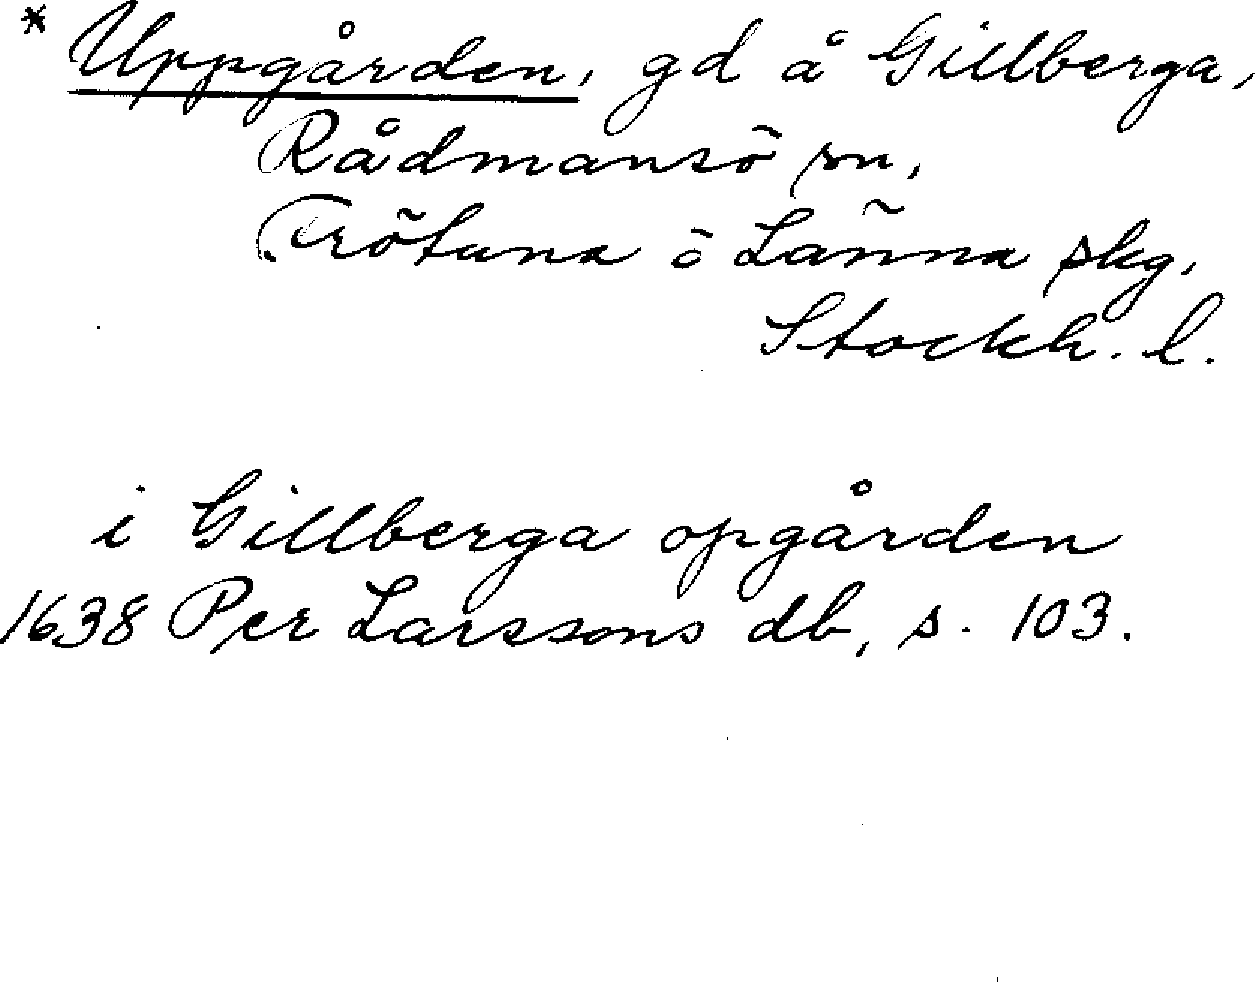 * Uppgården, gd å Gillberga,
Rådmansö sn,
Frötuna o Länna skg,
Stockh. l.
i Gillberga opgården
1638 Per Larssons db, s. 103.